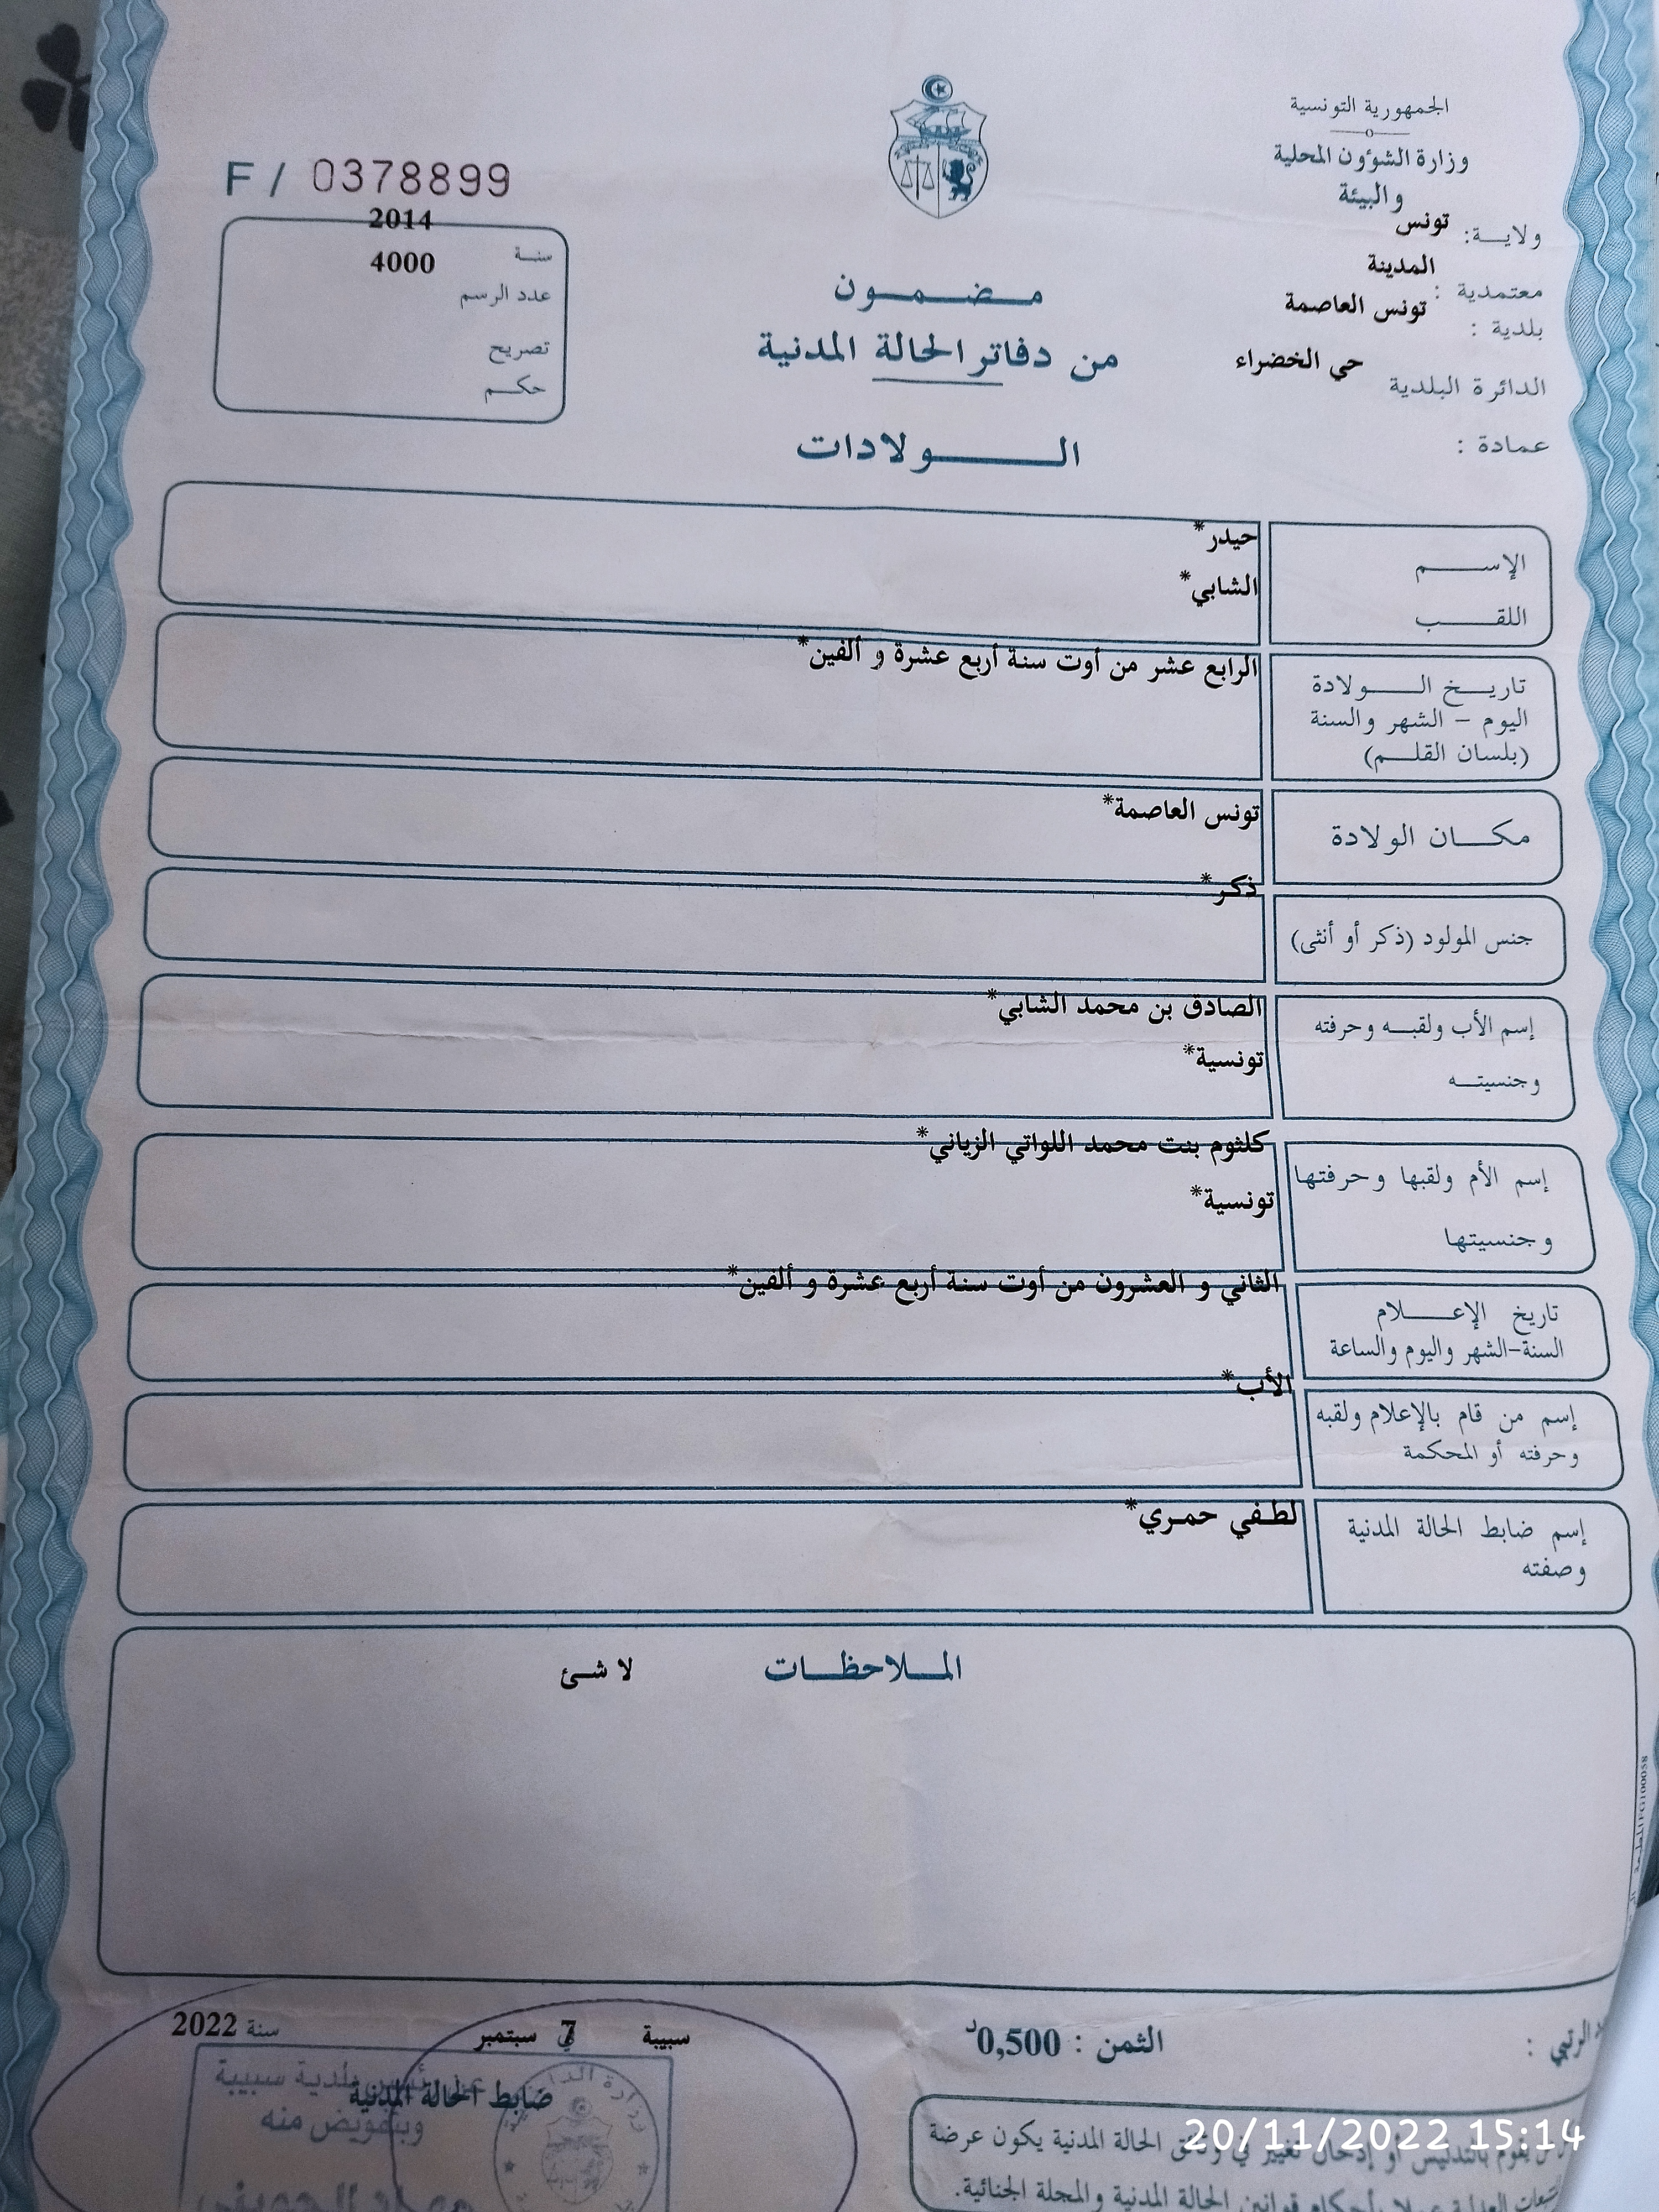 الجمهورية التونسية
وزارة الشؤون المحلية
والبيئة
ولاية: تونس
معتمدية : المدينة
بلدية : تونس العاصمة
الدائرة البلدية حي الخضراء
عمادة :
F / 0378899
سنة 2014
عدد الرسم 4000
تصريح
حكم
مضمون
من دفاتر الحالة المدنية
الولادات
الإسم حيدر*
اللقب الشابي*
تاريخ الولادة الرابع عشر من أوت سنة أربع عشرة و ألفين*
اليوم - الشهر والسنة
(بلسان القلم)
مكان الولادة تونس العاصمة*
جنس المولود (ذكر أو أنثى) ذكر*
إسم الأب ولقبه وحرفته الصادق بن محمد الشابي*
وجنسيته تونسية*
إسم الأم ولقبها وحرفتها كلثوم بنت محمد اللواتي الزياني*
وجنسيتها تونسية*
تاريخ الإعلام الثاني و العشرون من أوت سنة أربع عشرة و ألفين*
السنة-الشهر واليوم والساعة
إسم من قام بالإعلام ولقبه الأب*
وحرفته أو المحكمة
إسم ضابط الحالة المدنية لطفي حمري*
وصفته
الملاحظات لا شئ
الرتبي :
الثمن : 0,500د
سبيبة في 7 سبتمبر سنة 2022
ضابط الحالة المدنية
بلدية سبيبة
وبتفويض منه
يقوم بالتدليس أو إدخال تغيير في وثائق الحالة المدنية يكون عرضة
العدلية عملا بأحكام قوانين الحالة المدنية والمجلة الجنائية.
20/11/2022 15:14